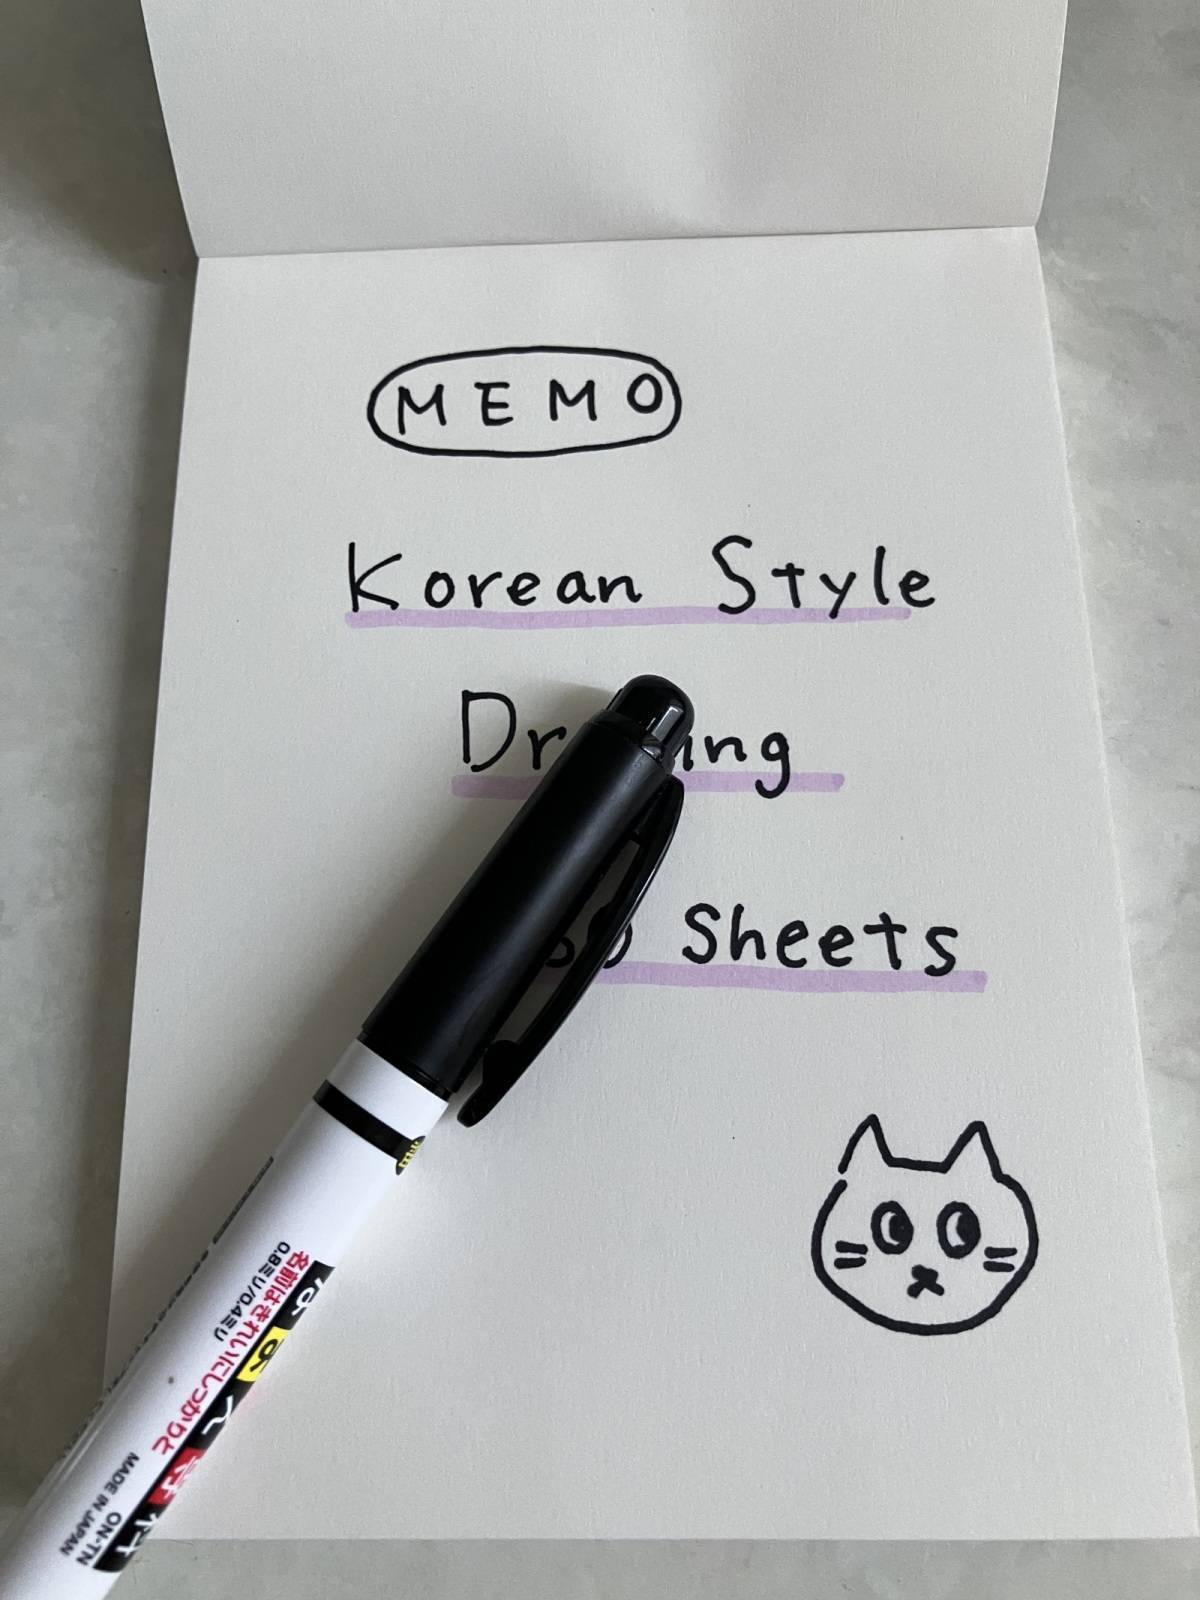 MEMO
Korean Style
Sheets
細
名前はきれいにしっかりと
0.8ミリ/0.4ミリ
なまえ専科
MADE IN JAPAN
ON-TN